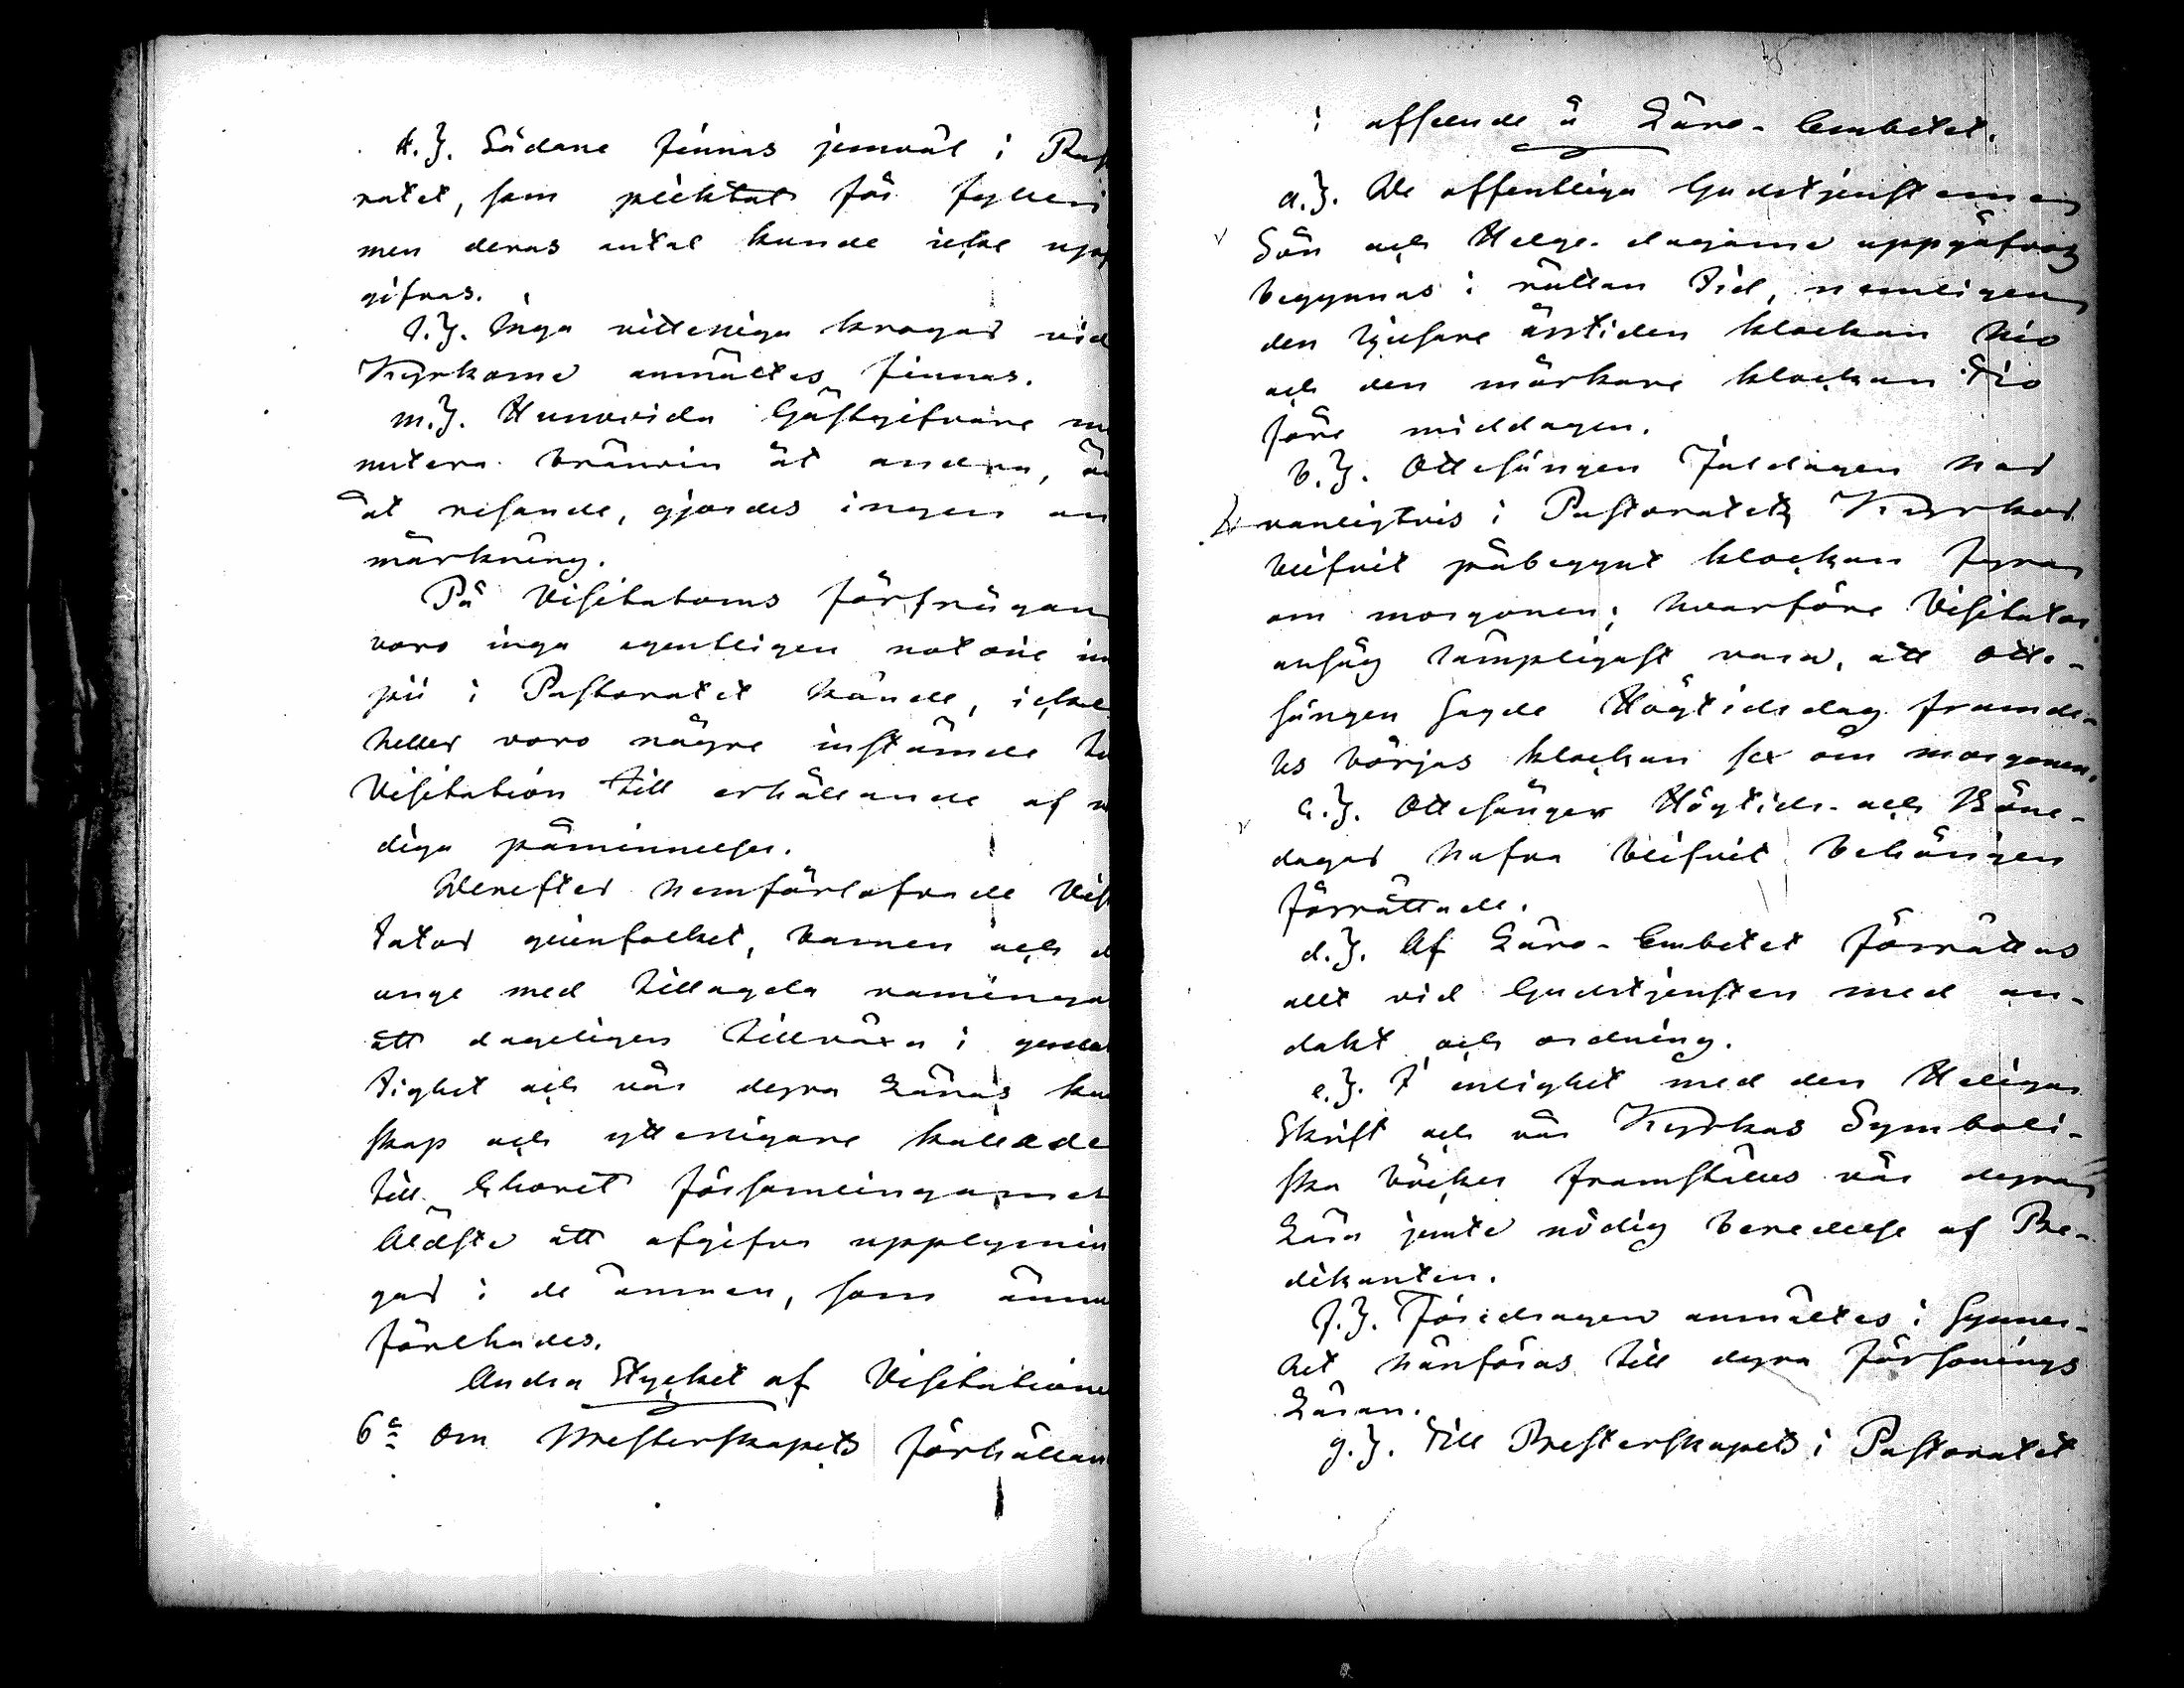 k.). Sådane finnas jemväl i Past
ratet, som pliktat för fylleri
men deras antal kunde icke upp
gifvas.
l.). Inga rättesliga krogar vid
Kyrkorne anmältes finnas.
m.). Huruvida Gästgifvare m
nutera bränvin åt andra, än
åt resande, gjordes ingen an
märkning.
På Visitatorns förfrågan
voro inga egentligen notorie im
pii i Pastoratet kände, icke
heller voro någre instämde to
Visitation till erhållande af n
diga påminnelser.
Derefter hemförlofvade Visi
tator qvinfolket, barnen och d
unge med tillagda varninga
att dageligen tillväxa i gudak
tighet och vår dyra Läras kun
skap och ytterligare kallade
till Choret församlingarnes
Äldste att afgifva upplysnin
gar i de ämnen, som ännu
förehades.
Andra Stycket af Visitatione
6e Om Presterskapets förhållan
i afseende å Läro-Embetet.
a.). De offentliga Gudstjensterne
Sön och Helge-dagarne uppgåfvos
begynnas i rättan tid, nemligen
den ljusare årstiden klockan nio
och den mörkare klockan Tio
före middagen.
b.). Ottesången Juldagen har
vanligtvis i Pastoratets Kyrkor
blifvit påbegynt klockan fyra
om morgonen; hvarföre Visitator
ansåg lämpligast vara, att otte-
sången sagde Högtidsdag framde-
les börjas klockan sex om morgonen.
c.). Ottesånger Högtids- och Böne-
dagar hafva blifvit behörigen
förrättade.
d.). Af Läro-Embetet förrättas
allt vid Gudstjensten med an-
dakt och ordning.
e.). I enlighet med den Heliga
Skrift och vår Kyrkas Symboli-
ska böcker framställes vår dyra
Lära jemte nödig beredelse af Pre-
dikanten.
f.). Föredragen anmältes i Synner-
het hänföras till dyra försonings
Läran.
g.). Till Presterskapets i Pastoratet